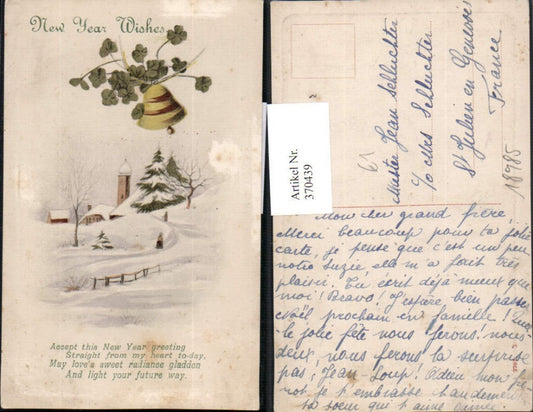 New Year Wishes
Accept this New Year greeting
Straight from my heart to-day.
May love's sweet radiance gladden
And light your future way.
Artikel Nr.
370439
Master Jean Schluchter
c/o Mrs Schluchter
St Julien en Genevois
France
18985
Mon cher grand frère,
Merci beaucoup pour ta jolie
carte, je pense que c'est un peu
notre Suzie elle m'a fait très
plaisir. Tu écrit déjà mieux que
moi! Bravo! J'espère, bien passer
Noël prochain en famille!
le jolie fête nous ferons! nous
deux, nous ferons la surprise
pas, Jean-Loup! Adieu mon
je t'embrasse tendrement
ta soeur qui t'aime